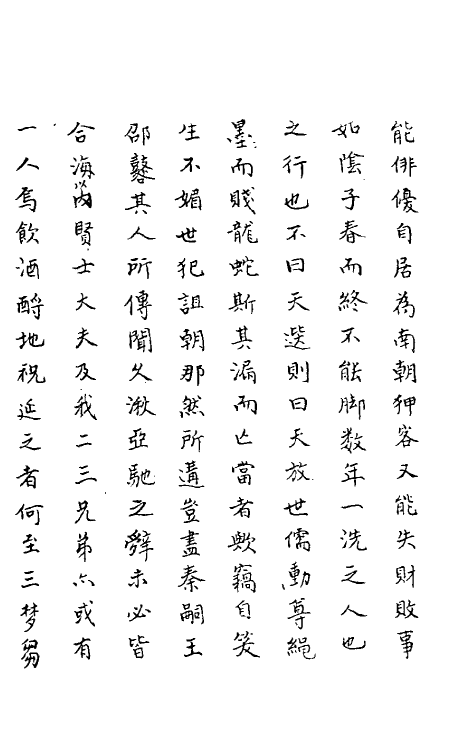 能俳優自居為南朝狎客又能失財敗事
如陰子春而終不能脚数年一洗之人也
之行也不曰天選則曰天放世儒動尊繩
墨而賤龍蛇斯其漏而亡當者歟竊自笑
生不媚世犯詛朝那然所遘豈盡秦嗣王
邵鼛其人所傳聞久湫亞馳之辭未必皆
合海內賢士大夫及我二三兄弟六或有
一人焉飲酒酹地祝延之者何至三梦芻